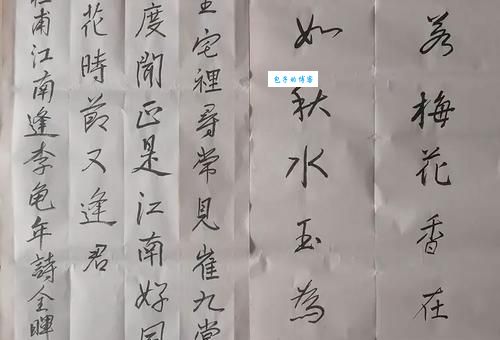 若梅花香在
如秋水玉為
王宅裡尋常見崔九堂
度聞正是江南好風
花時節又逢君
杜甫江南逢李龟年詩全暉
包子的博客